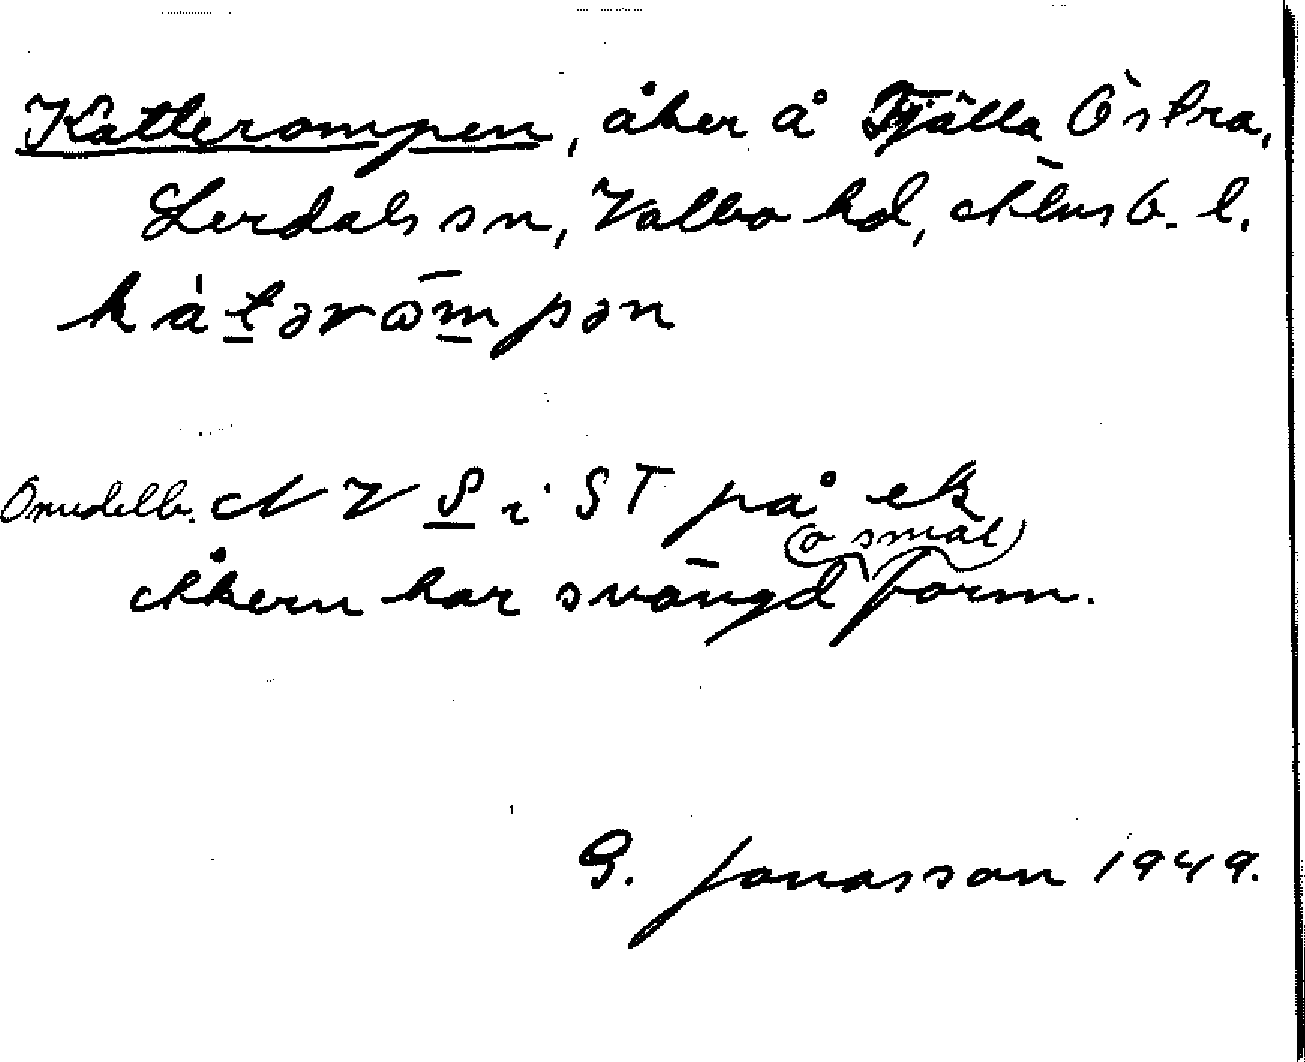 Katterompen, åker å Fjälla Östra,
Lerdals sn, Valbo hd, Älvsb. l.
kàt̠ərɷm̠pən
Omedelb. N V S i ST på ek
Åkern har svängd (o smal) form.
G. Jonasson 1949.